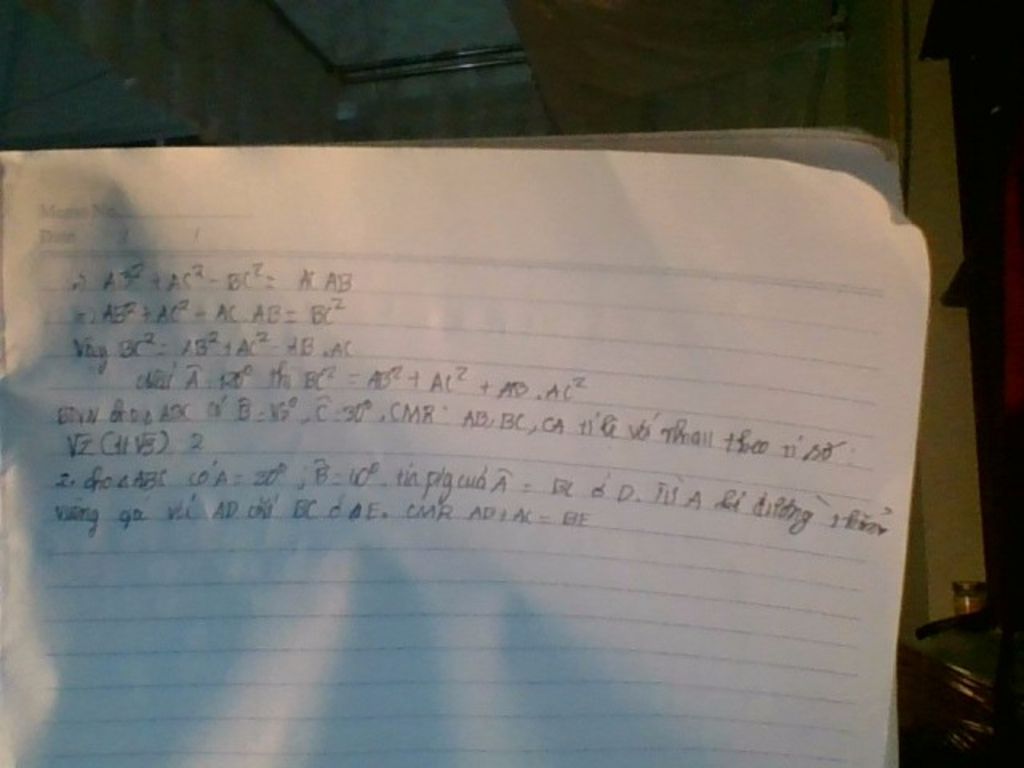 Memo No.
Date / /
=) AB² + AC² - BC² = AC AB
=) AB² + AC² - AC AB = BC²
Vậy BC² = AB² + AC² - AB . AC
Â = 120° thì BC² = AB² + AC² + AB . AC²
ABC có B̂ = 45°, Ĉ = 30°. CMR: AB, BC, CA tỉ lệ với nhau theo tỉ số:
√2 (1+√3) 2
2. cho △ABC có A = 20°, B̂ = 40°. tia p/g của Â = BC ở D. Từ A kẻ đường thẳng
vuông góc với AD cắt BC ở E. CMR AD + AC = BE